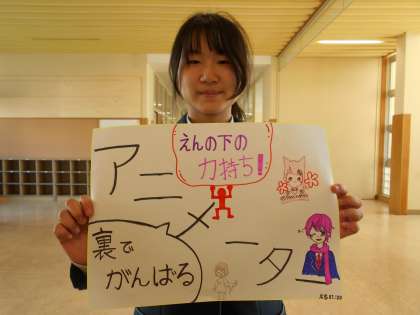 えんの下の
力持ち!
アニメーター
裏で
がんばる